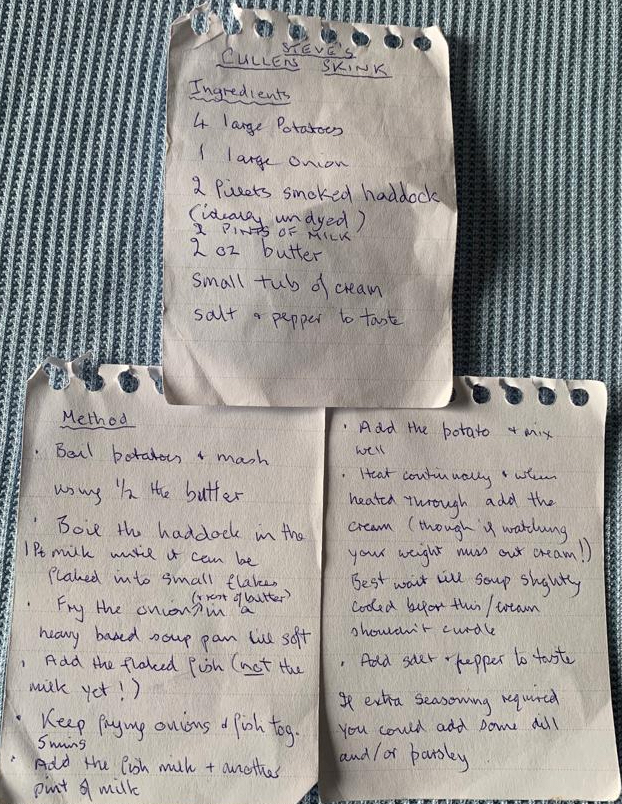 STEVE'S
CULLEN SKINK
Ingredients
4 large Potatoes
1 large onion
2 fillets smoked haddock
(ideally undyed)
2 PINTS OF MILK
2 oz butter
small tub of cream
salt + pepper to taste
Method
• Boil potatoes + mash
using 1/2 the butter
• Boil the haddock in the
1Pt milk until it can be
flaked into small flakes
(+ rest of butter)
• Fry the onion in a
heavy based soup pan till soft
• Add the flaked fish (not the
milk yet!)
• Keep frying onions & fish tog.
5mins
• Add the fish milk + another
pint of milk
• Add the potato + mix
well
• Heat continually + when
heated through add the
cream (though if watching
your weight miss out cream!)
Best wait till soup slightly
cooled before this/cream
shouldn't curdle
• Add salt + pepper to taste
If extra seasoning required
you could add some dill
and/or parsley